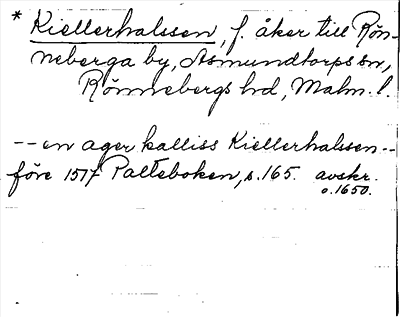 * Kiellerhalssen, f. åker till Rön-
neberga by, Asmundtorps sn,
Rönnebergs hd, Malm. l.
-- en ager kalliss Kiellerhalssen --
före 1517 Palteboken, s. 165. avskr.
o. 1650.